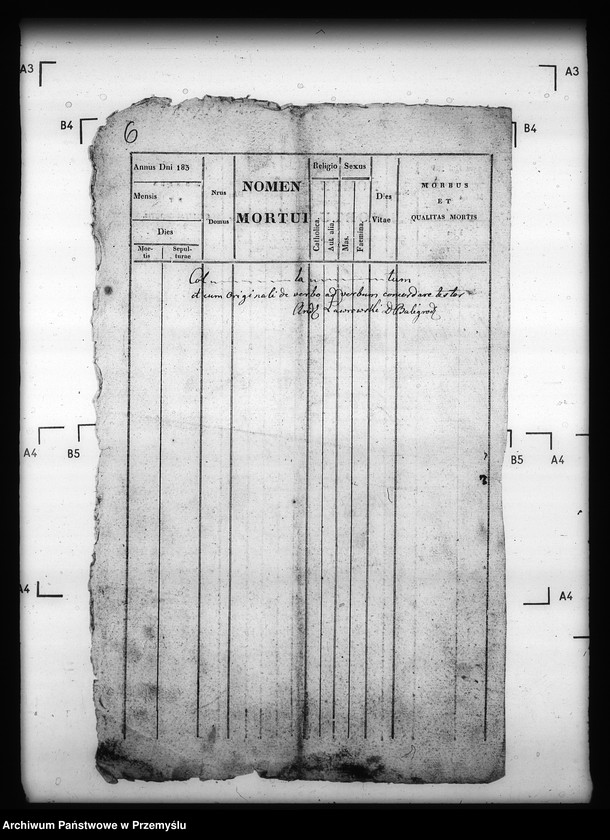 A3
A3
B4
B4
6
Annus Dni 183
Mensis
Dies
Mor-
tis
Sepul-
turae
Nrus
Domus
NOMEN
MORTUI
Religio
Catholica.
Aut alia.
Sexus
Mas.
Faemina.
Dies
Vitae
MORBUS
ET
QUALITAS MORTIS
Col ta tum
et cum originali de verbo ad verbum concordare testor
Ławrowski
A4
B5
B5
A4
A4
A4
Archiwum Państwowe w Przemyślu